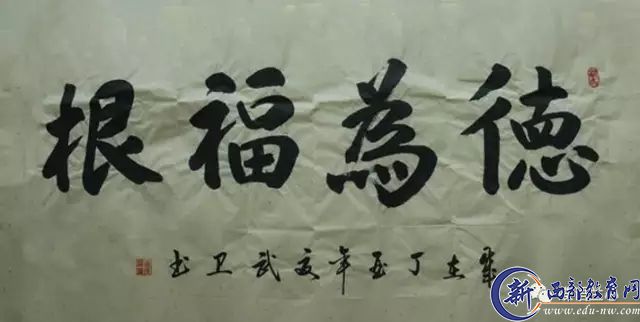 德為福根
歲在丁酉年夏武卫书
新 西部教育网
www.edu-nw.com